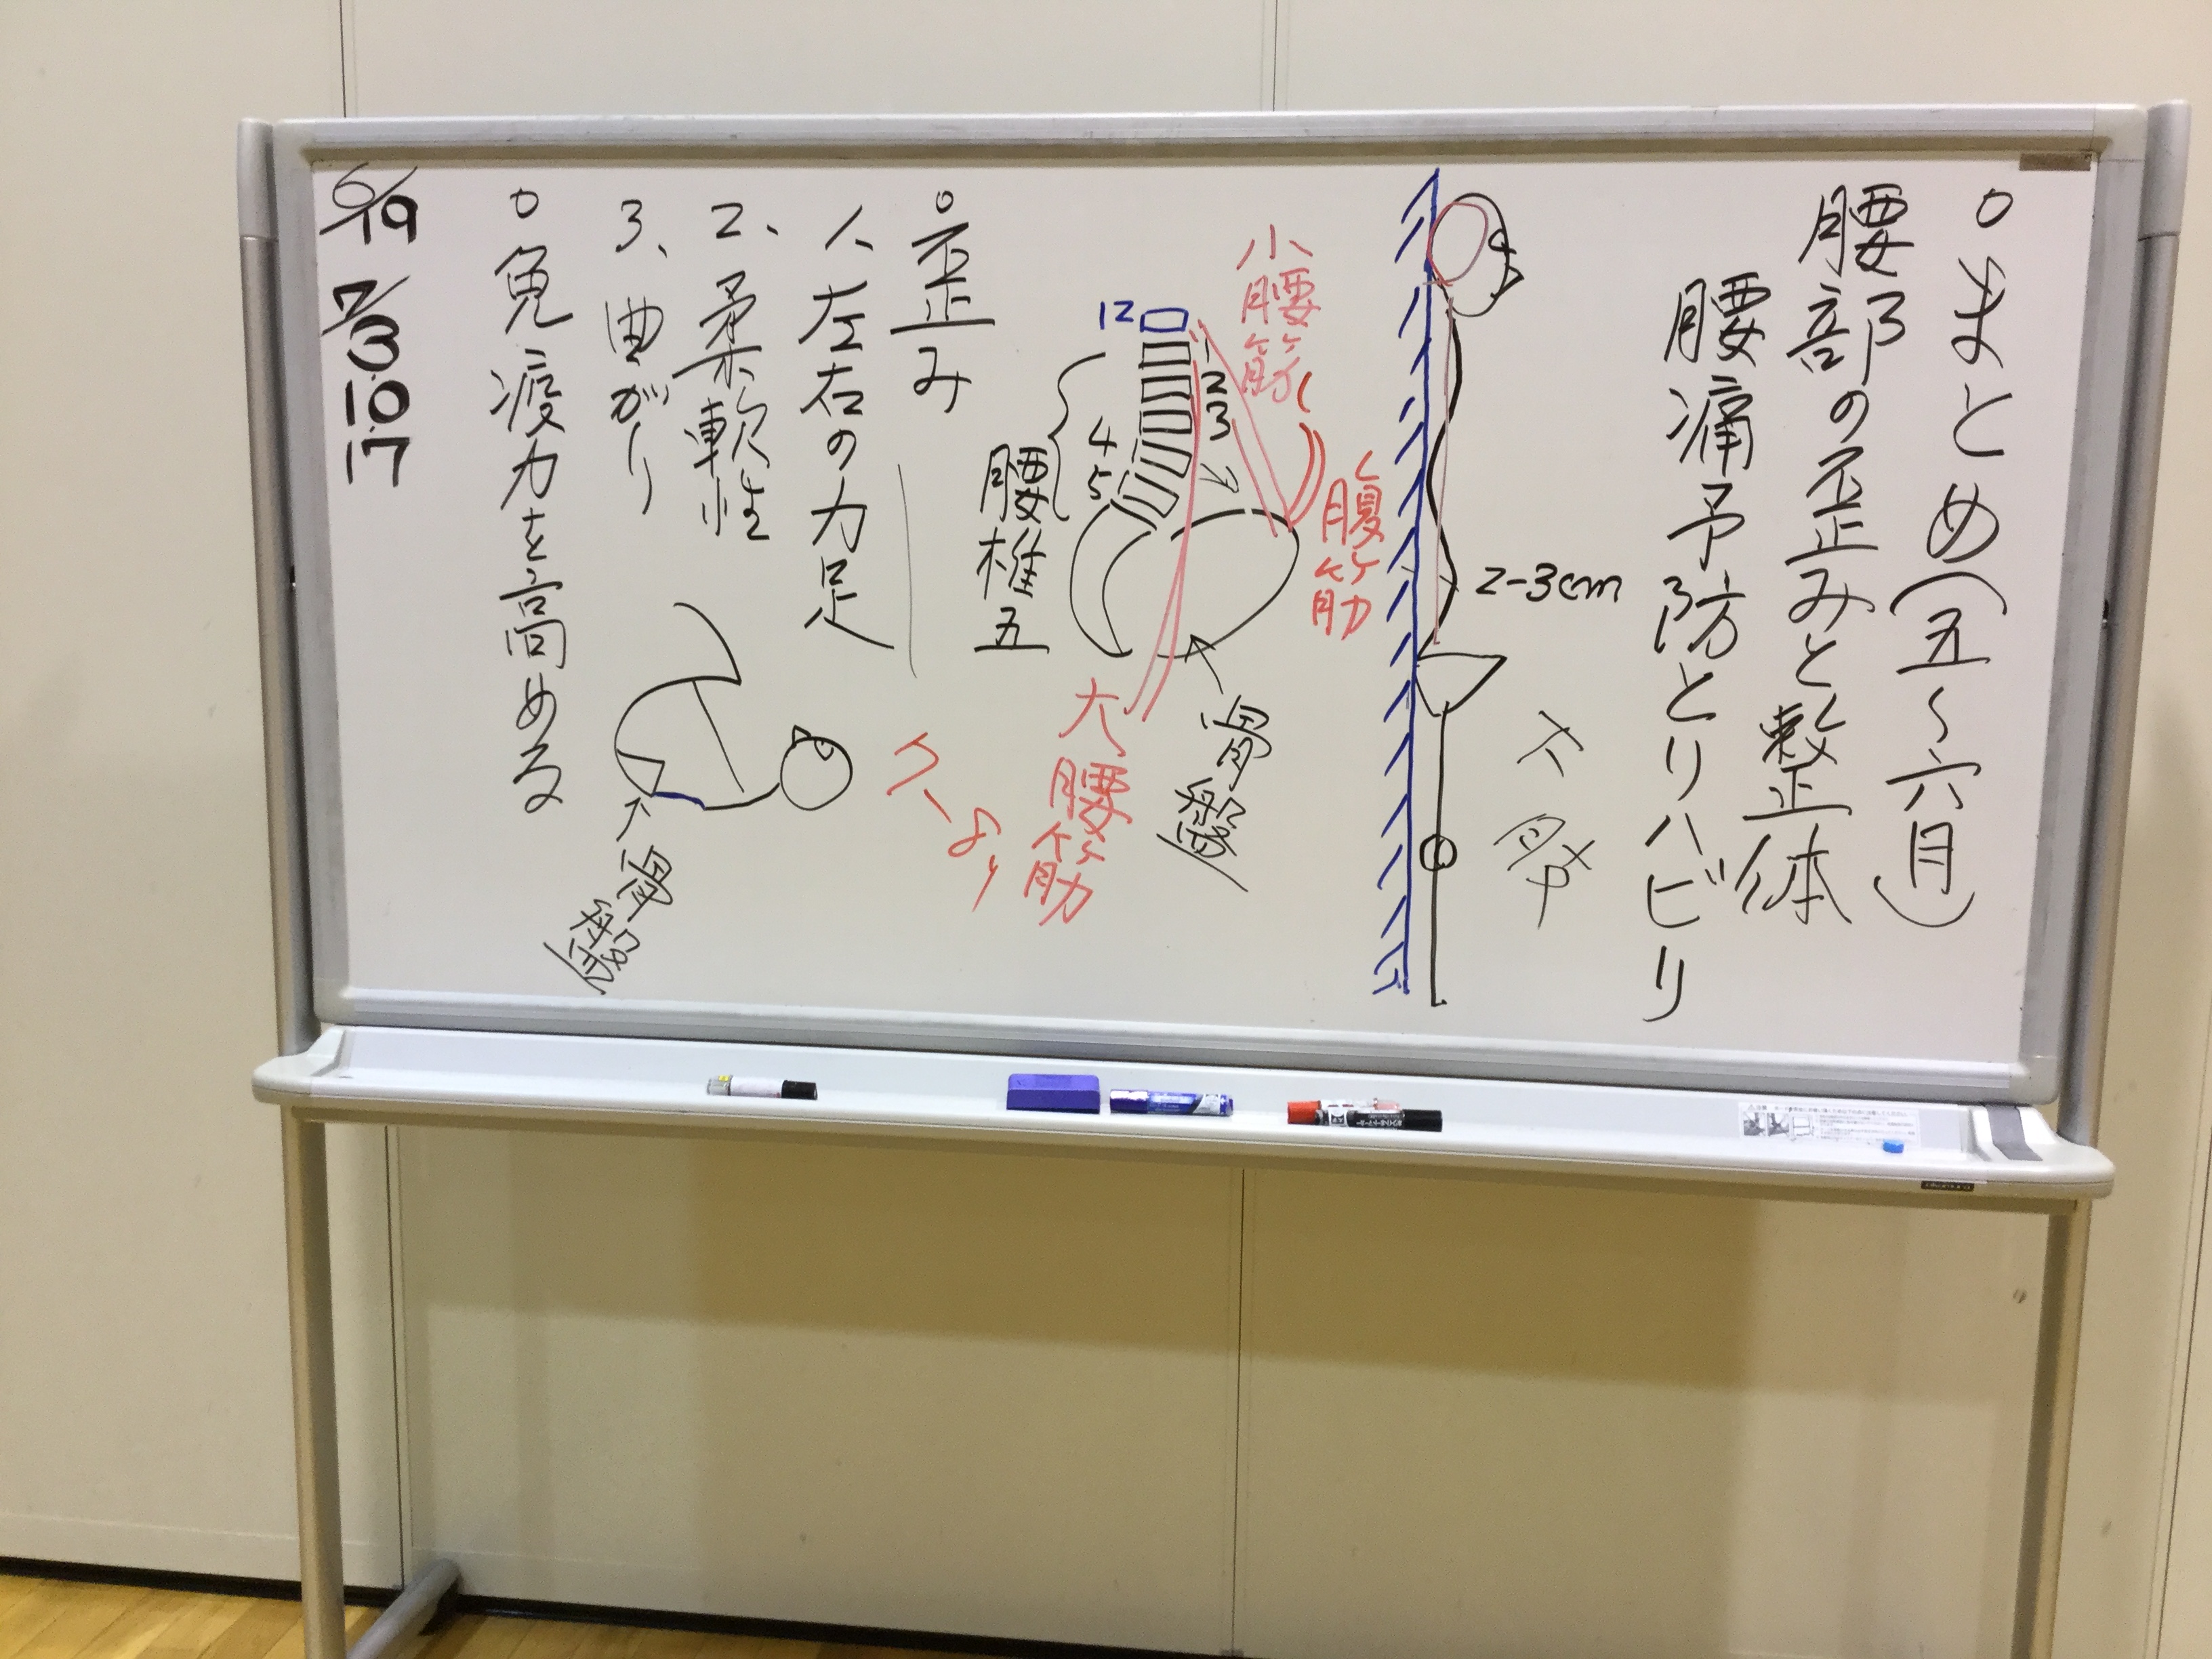 ○まとめ(五〜六月)
腰部の歪みと整体
腰痛予防とリハビリ
2-3cm
小腰筋
腹筋
12
1
2
3
4
5
腰椎五
骨盤
大腰筋
○歪み
1、左右の力足
2、柔軟性
3、曲がり
骨盤
○免疫力を高める
6/19
7/3
10
17